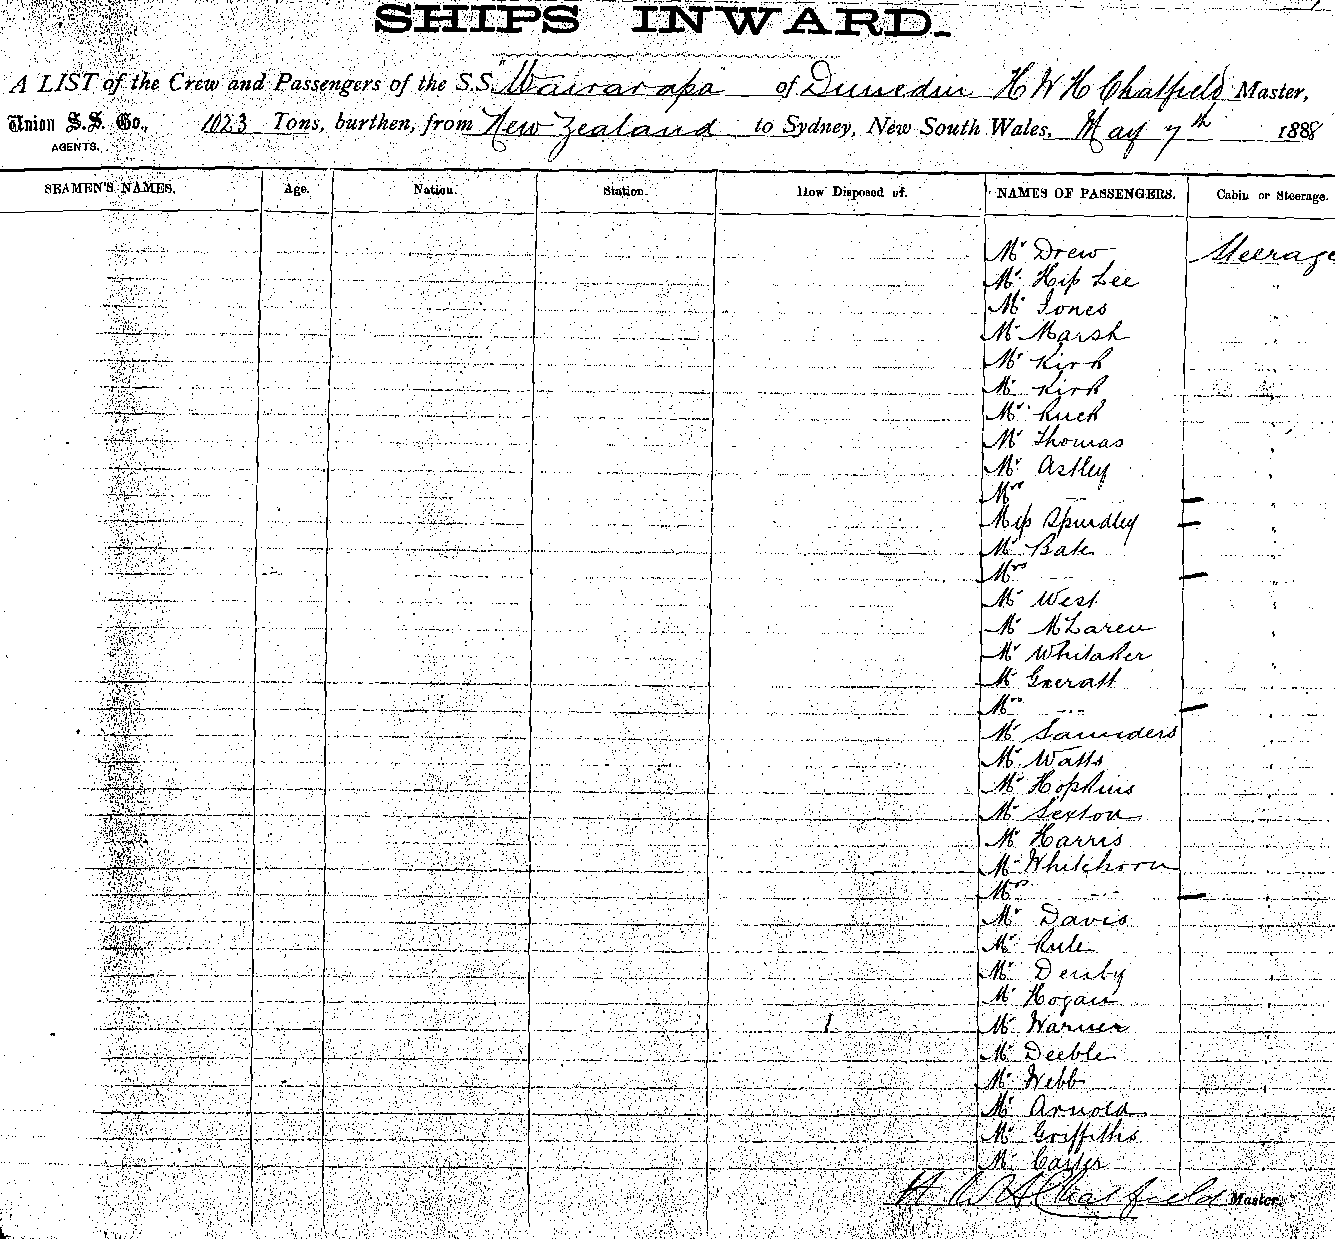 SHIPS INWARD.
A LIST of the Crew and Passengers of the S.S. "Wairarapa" of Dunedin H W H Chatfield Master,
Union S.S. Co., 1023 Tons, burthen, from New Zealand to Sydney, New South Wales, May 7th 1888
AGENTS.
SEAMEN'S NAMES. Age. Nation. Station. How Disposed of. NAMES OF PASSENGERS. Cabin or Steerage.
Mr Drew Steerage
Mr Hip Lee "
Mr Jones "
Mr Marsh "
Mr Kirk "
Mr Kirk "
Mr Ruck "
Mr Thomas "
Mr Astley "
Mrs --- "
Miss Spurdley "
Mr Bate "
Mrs --- "
Mr West "
Mr McLaren "
Mr Whitaker "
Mr "
Mrs --- "
Mr Saunders "
Mr Watts "
Mr Hopkins "
Mr Sexton "
Mr Harris "
Mr Whitehorn "
Mrs --- "
Mr Davis "
Mr Rule "
Mr Denby "
Mr Hogan "
Mr Warner "
Mr Deeble "
Mr Webb "
Mr Arnold "
Mr Griffiths "
Mr Carter "
H W H Chatfield Master.